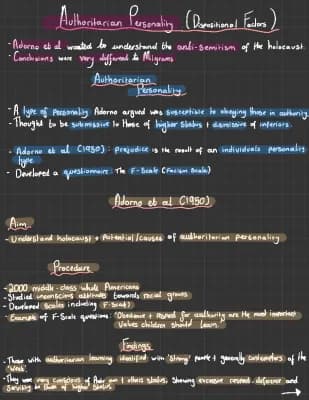 Authoritarian Personality (Dispositional Factors)
- Adorno et al wanted to understand the anti-semitism of the holocaust.
- Conclusions were very different to Milgrams
Authoritarian
Personality
- A type of personality Adorno argued was susceptible to obeying those in authority.
- Thought to be submissive to those of higher status + dismissive of inferiors.
- Adorno et al (1950): prejudice is the result of an individuals personality
type
- Developed a questionnaire: The F-Scale (Fascism Scale)
Adorno et al (1950)
Aim
- Understand holocaust + potential/causes of authoritarian personality
Procedure
- 2000 middle-class white Americans
- Studied unconscious attitudes towards racial groups
- Developed scales including F-Scale
- Example of F-Scale questions: 'Obedience + respect for authority are the most important
values children should learn.'
Findings
- Those with authoritarian leaning identified with 'strong' people + generally contemptuous of the
'weak'.
- They were very conscious of their own + others status, showing excessive respect, deference and
servility to those of higher status